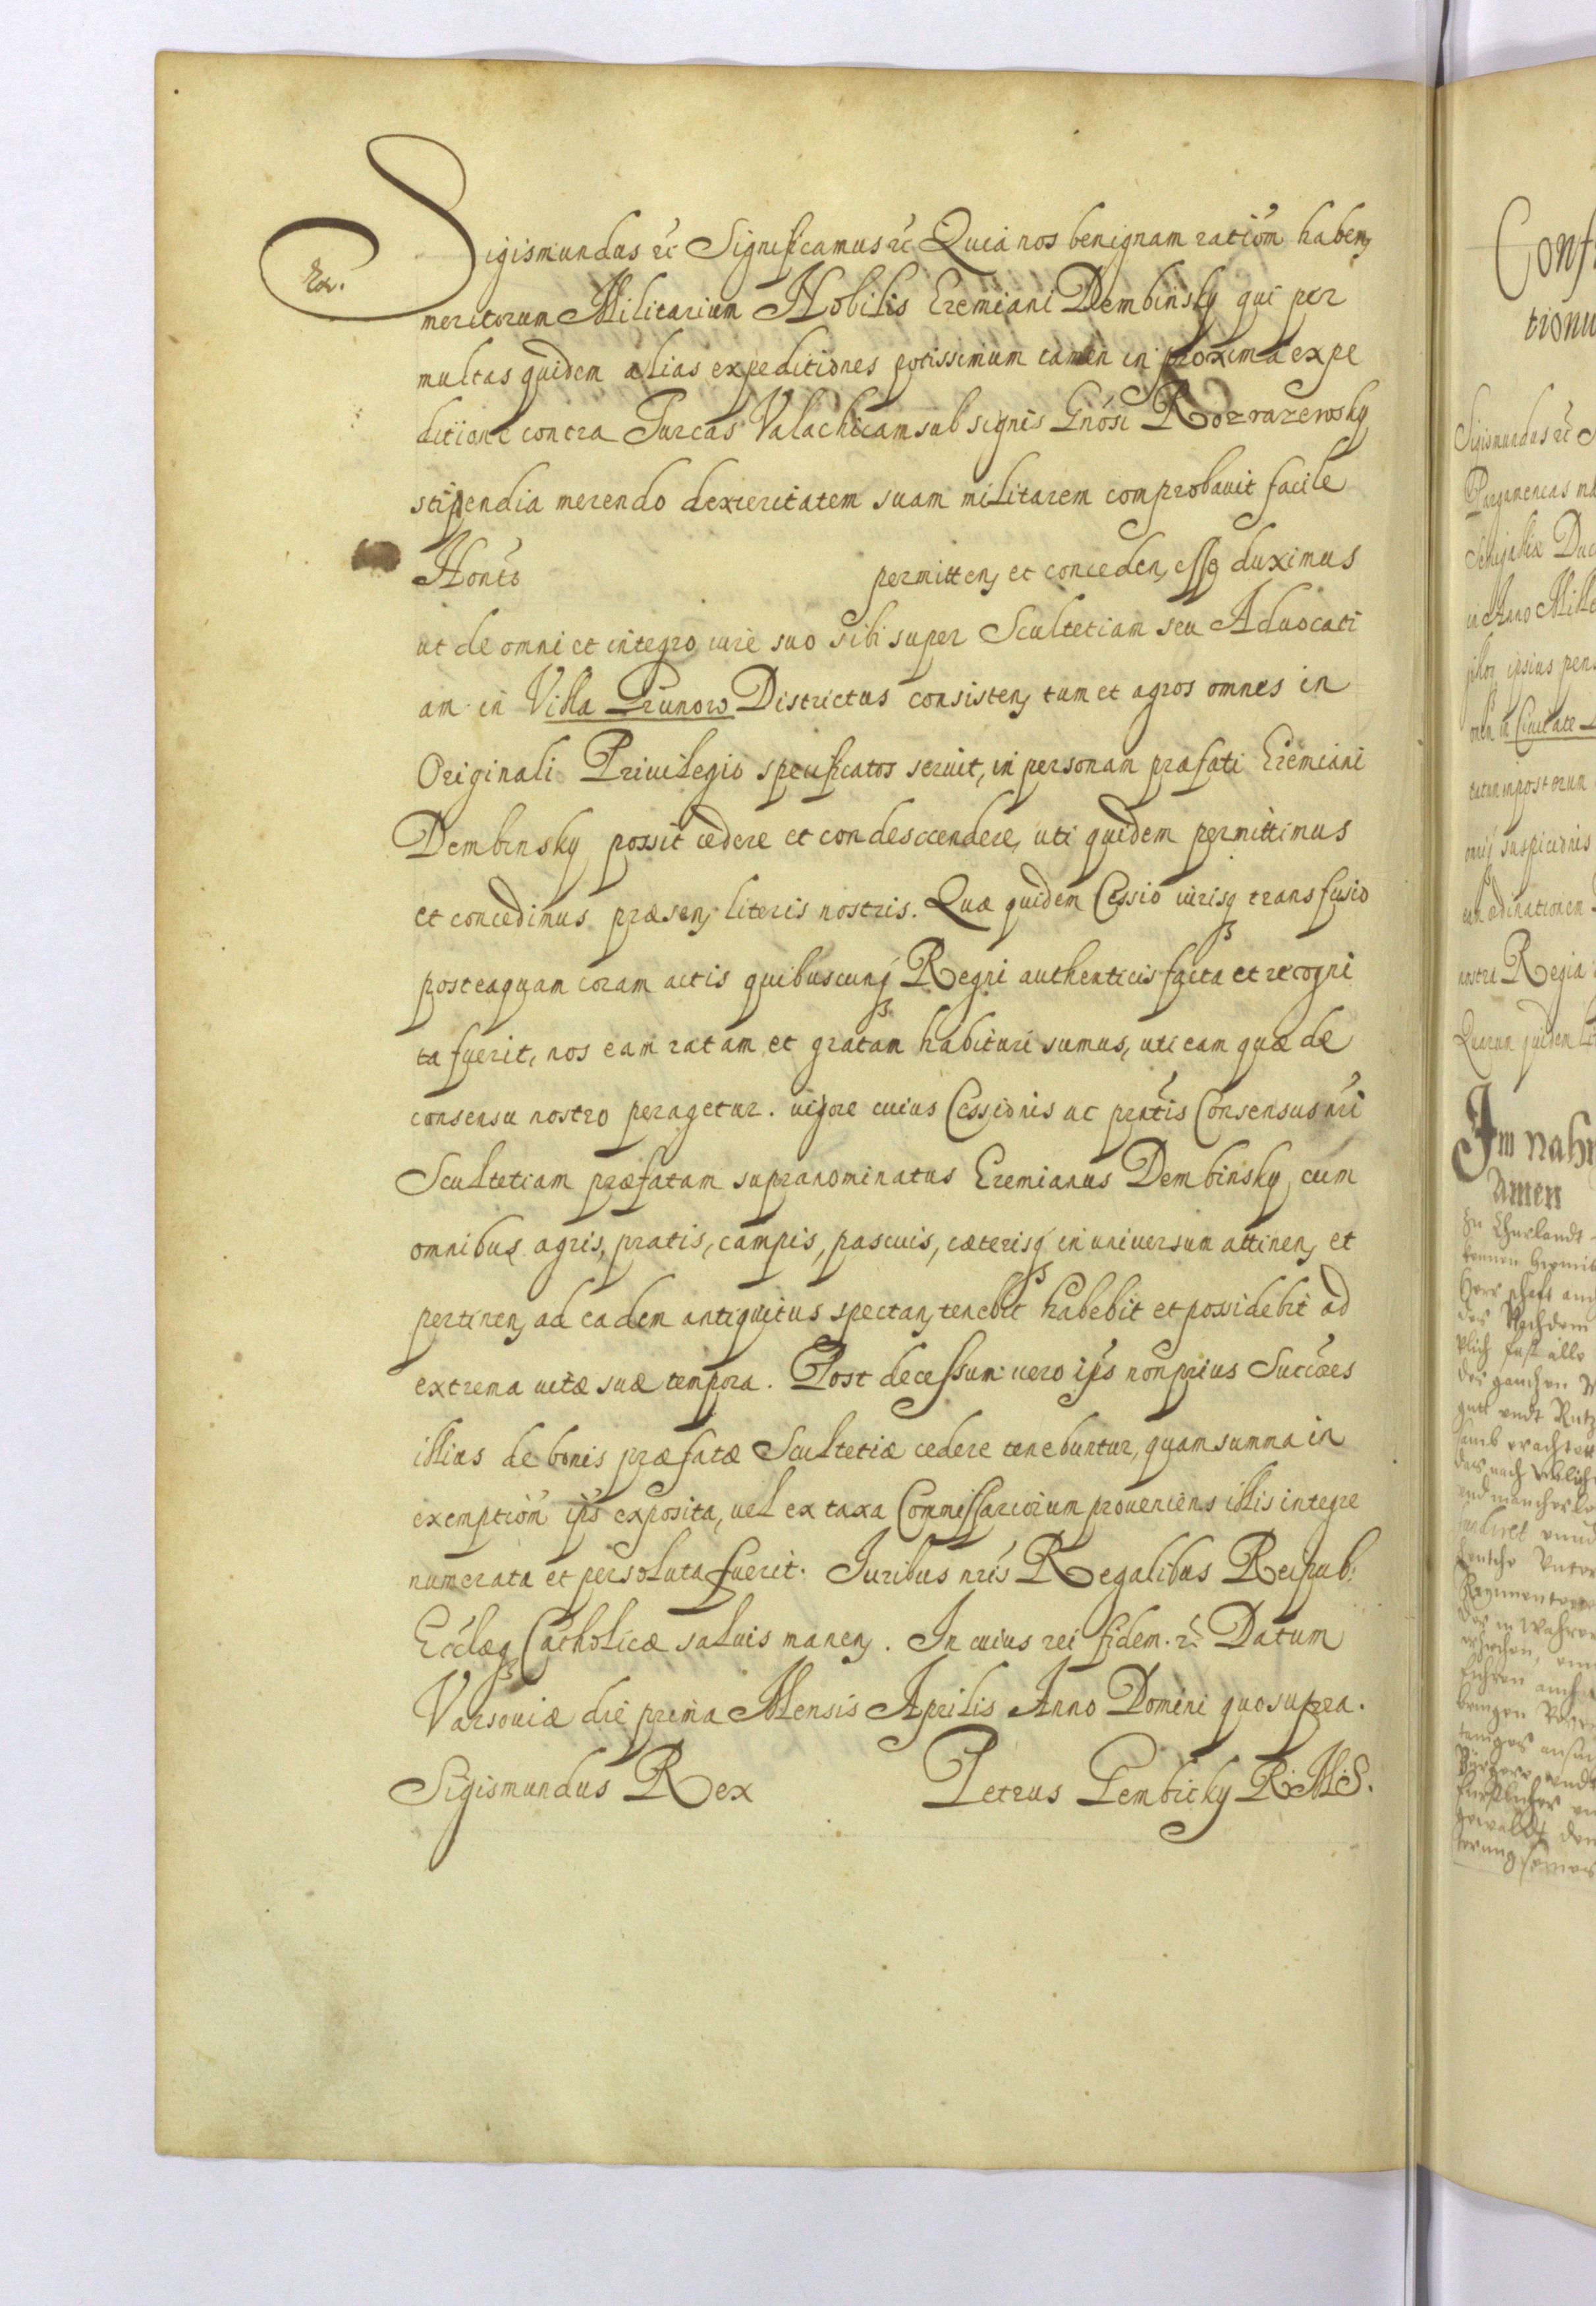 Sigismundus ꝛc Significamus ꝛc Quia nos benignam ratiõm haben,
meritorum Militarium Nobilis Eremiani Dembinsky qui per
multas quidem alias expeditiones potissimum tamen in proxima expe
ditione contra Turcas Valachicam sub signis Gnósi Rozrazewsky
stipendia merendo dexteritatem suam militarem comprobavit facile
Honto permitten, et conceden, esse duximus
ut de omni et integro iure suo sibi super Scultetiam seu Advocati
am in Villa Grunow Districtus consisten, tum et agros omnes in
Originali Privilegio specificatos servit, in personam præfati Eremiani
Dembinsky possit cedere et condescendere, uti quidem permittimus
et concedimus præsen, literis nostris. Quæ quidem Cessio iurisq transfusio
posteaquam coram actis quibuscunq Regni authenticis facta et recogni
ta fuerit, nos eam ratam et gratam habituri sumus, uti eam quæ de
consensu nostro peragetur. vigore cuius Cessionis ac prãtis Consensus nri
Scultetiam præfatam supranominatus Eremianus Dembinsky cum
omnibus agris, pratis, campis, pascuis, cæterisq in universum attinen, et
pertinen, ad eadem antiquitus spectan, tenebit habebit et possidebit ad
extrema vitæ suæ tempora. Post decessum vero ips non prius Succóes
illius de bonis præfatæ Scultetiæ cedere tenebuntur, quam summa in
exemptiõm ips exposita, vel ex taxa Commissariorum proveniens illis integre
numerata et persoluta fuerit. Iuribus nris Regalibus Reipub:
Ecclæq Catholicæ salvis manen,. In cuius rei fidem. ꝛc Datum
Varsoviæ die prima Mensis Aprilis Anno Domini quo supra.
Sigismundus Rex Petrus Gembicky R. M. S.
Conf
tionu
Sigismundus ꝛc S
Pergameneas
Senigaliæ Duc
in Anno Mille
ipsius
in Civitate
suspicionis
nostra Regia
Quarum quidem
Im Nahm
Amen